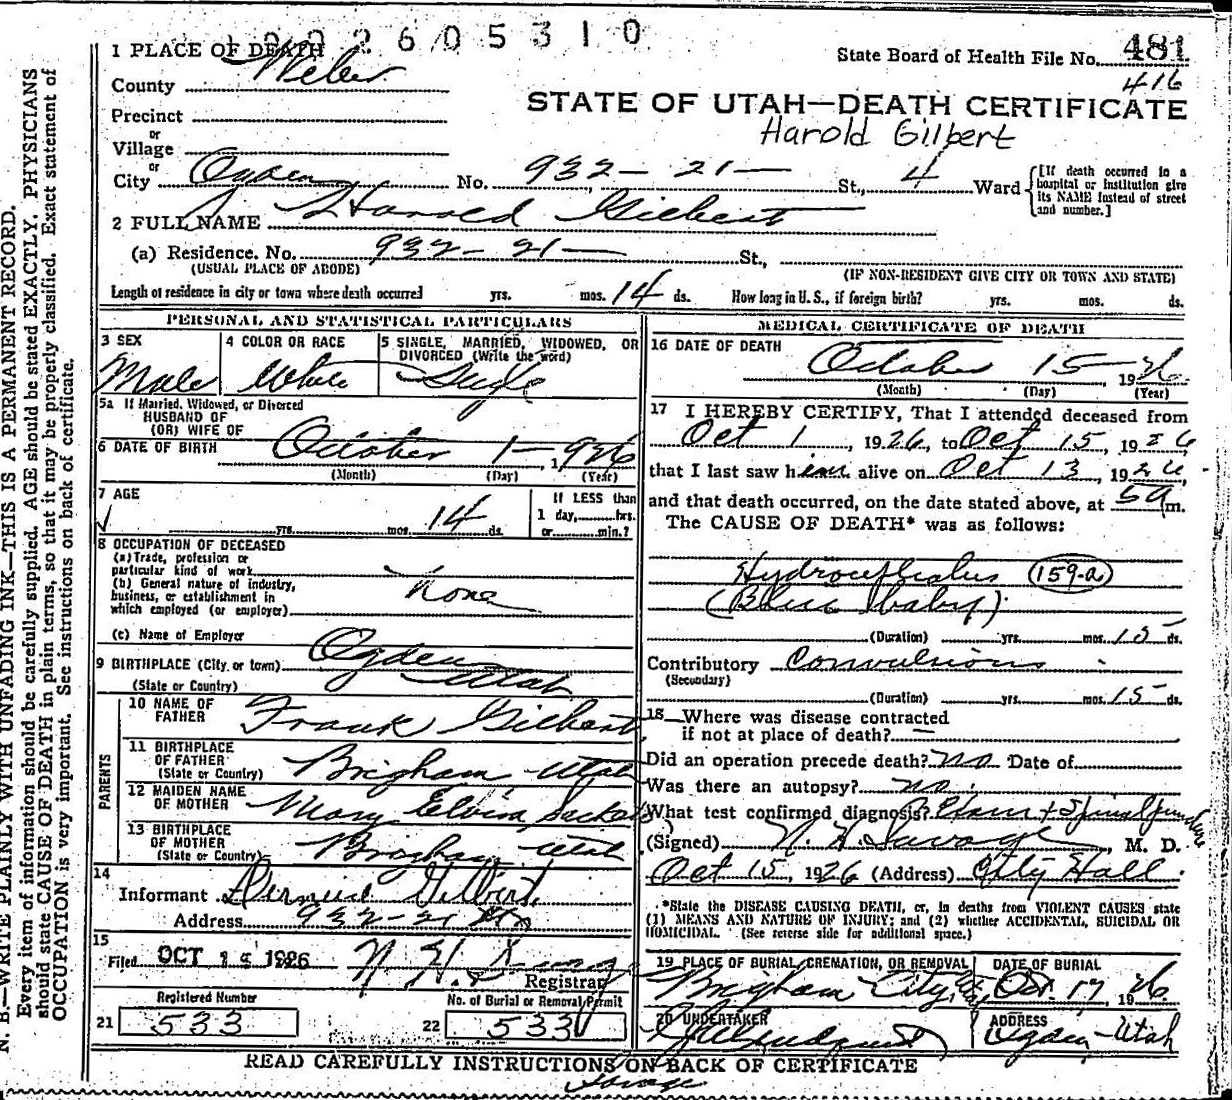 2605310
1 PLACE OF DEATH
State Board of Health File No. 481
County Weber
416
STATE OF UTAH—DEATH CERTIFICATE
Precinct
Harold Gilbert
or
Village
or
City Ogden No. 932 - 21 — St., 4 Ward
[If death occurred in a hospital or institution give its NAME instead of street and number.]
2 FULL NAME Harold Gilbert
(a) Residence. No. 932 - 21 — St.,
(USUAL PLACE OF ABODE) (IF NON-RESIDENT GIVE CITY OR TOWN AND STATE)
Length of residence in city or town where death occurred yrs. mos. 14 ds. How long in U. S., if foreign birth? yrs. mos. ds.
PERSONAL AND STATISTICAL PARTICULARS
3 SEX
Male
4 COLOR OR RACE
White
5 SINGLE, MARRIED, WIDOWED, OR DIVORCED (Write the word)
Single
5a If Married, Widowed, or Divorced
HUSBAND OF
(OR) WIFE OF
6 DATE OF BIRTH October 1 — 1926
(Month) (Day) (Year)
7 AGE
yrs. mos. 14 ds.
If LESS than
1 day, hrs.
or min.?
8 OCCUPATION OF DECEASED
(a) Trade, profession or
particular kind of work
(b) General nature of industry,
business, or establishment in
which employed (or employer)
None
(c) Name of Employer
9 BIRTHPLACE (City or town) Ogden
(State or Country) Utah
PARENTS
10 NAME OF
FATHER Frank Gilbert
11 BIRTHPLACE
OF FATHER
(State or Country) Brigham, Utah
12 MAIDEN NAME
OF MOTHER Mary Elvira
13 BIRTHPLACE
OF MOTHER
(State or Country) Brigham, Utah
14
Informant Gilbert
Address 932 - 21
15
Filed OCT 15 1926 N. H. Savage
Registrar
Registered Number
21 533
No. of Burial or Removal Permit
22 533
MEDICAL CERTIFICATE OF DEATH
16 DATE OF DEATH
October 15 — 1926
(Month) (Day) (Year)
17 I HEREBY CERTIFY, That I attended deceased from
Oct 1, 1926, to Oct 15, 1926
that I last saw him alive on Oct 13, 1926,
and that death occurred, on the date stated above, at 5 a m.
The CAUSE OF DEATH* was as follows:
Hydrocephalus 159-a
(Blue baby)
(Duration) yrs. mos. 15 ds.
Contributory Convulsions
(Secondary)
(Duration) yrs. mos. 15 ds.
18 Where was disease contracted
if not at place of death? —
Did an operation precede death? no Date of
Was there an autopsy? no.
What test confirmed diagnosis? + Spinal
(Signed) N. H. Savage, M. D.
Oct 15, 1926 (Address) City Hall
*State the DISEASE CAUSING DEATH, or, in deaths from VIOLENT CAUSES state
(1) MEANS AND NATURE OF INJURY; and (2) whether ACCIDENTAL, SUICIDAL OR
HOMICIDAL. (See reverse side for additional space.)
19 PLACE OF BURIAL, CREMATION, OR REMOVAL
Brigham City
DATE OF BURIAL
Oct. 17, 1926
20 UNDERTAKER
ADDRESS
Ogden - Utah
READ CAREFULLY INSTRUCTIONS ON BACK OF CERTIFICATE
Savage
N. B.—WRITE PLAINLY WITH UNFADING INK—THIS IS A PERMANENT RECORD.
Every item of information should be carefully supplied. AGE should be stated EXACTLY. PHYSICIANS
should state CAUSE OF DEATH in plain terms, so that it may be properly classified. Exact statement of
OCCUPATION is very important. See instructions on back of certificate.